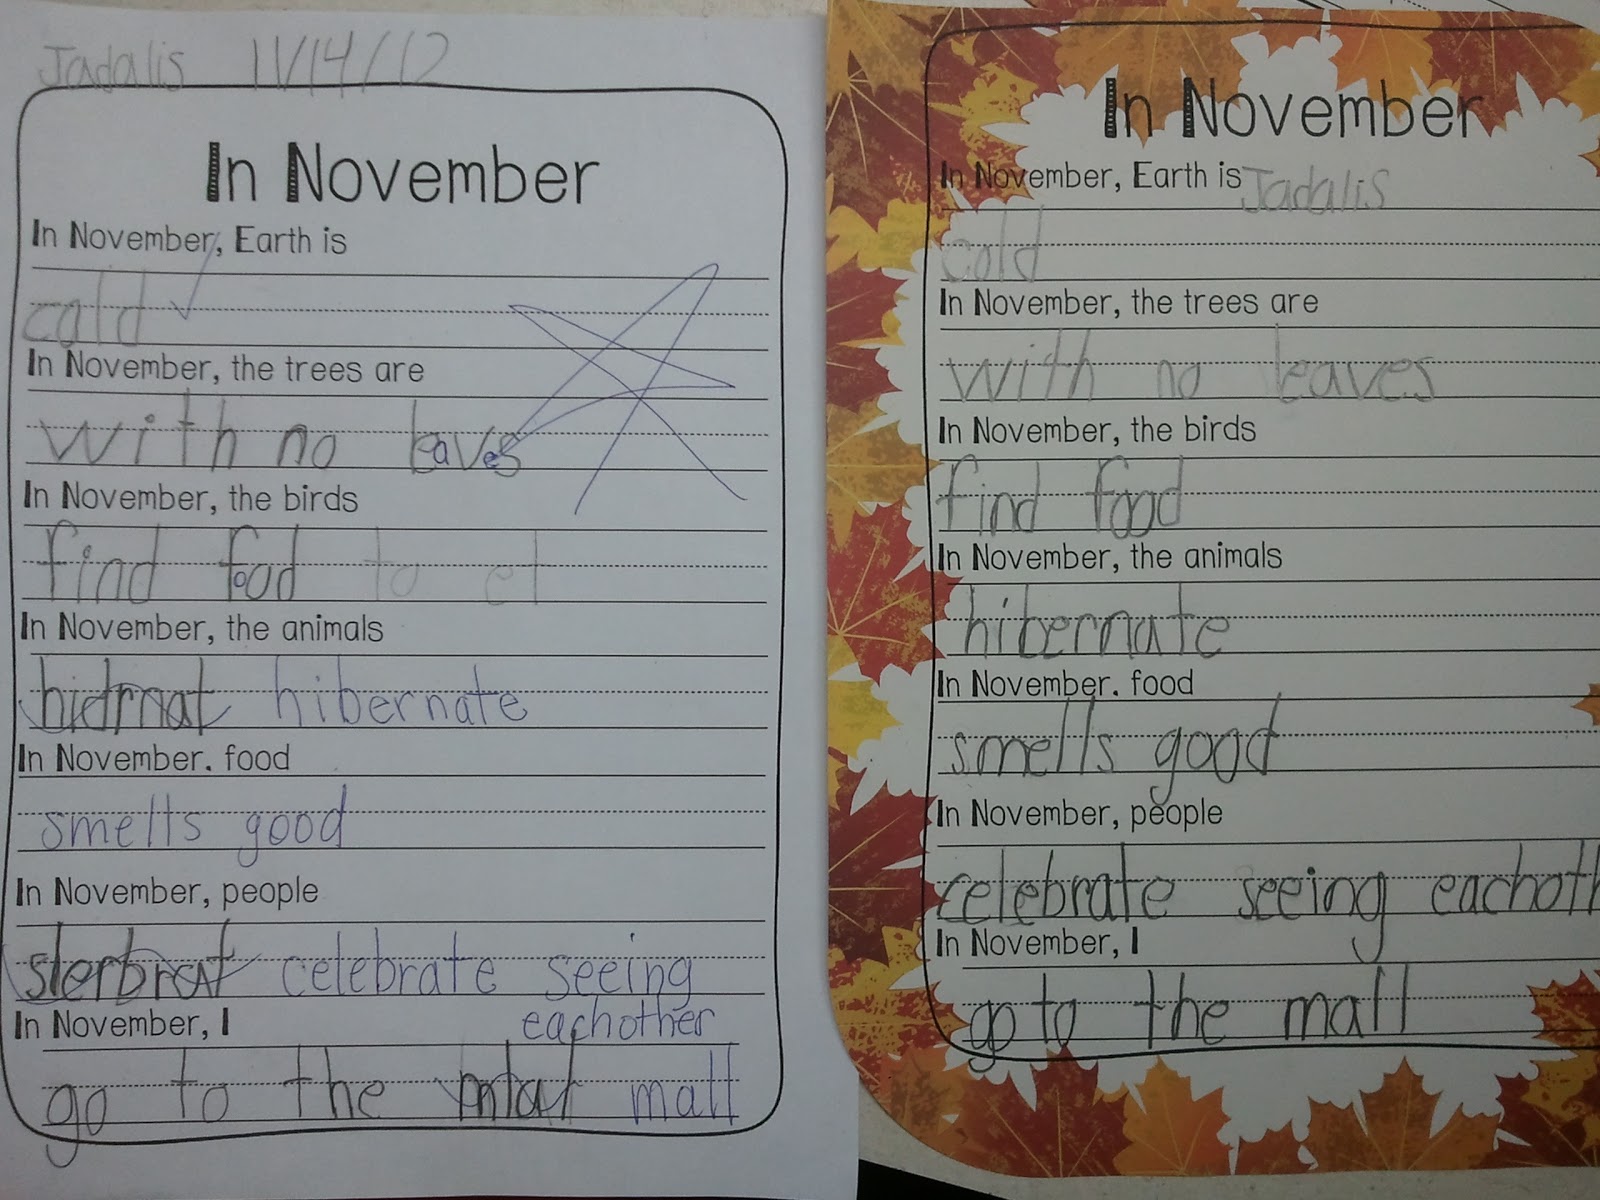 Jadalis 11/14/12
In November
In November, Earth is
cold
In November, the trees are
with no leaves
In November, the birds
find food to et
In November, the animals
hidrnat hibernate
In November. food
smells good
In November, people
slerbrat celebrate seeing
eachother
In November, I
go to the mall
In November
In November, Earth is Jadalis
cold
In November, the trees are
with no leaves
In November, the birds
find food
In November, the animals
hibernate
In November. food
smells good
In November, people
celebrate seeing eachoth
In November, I
go to the mall